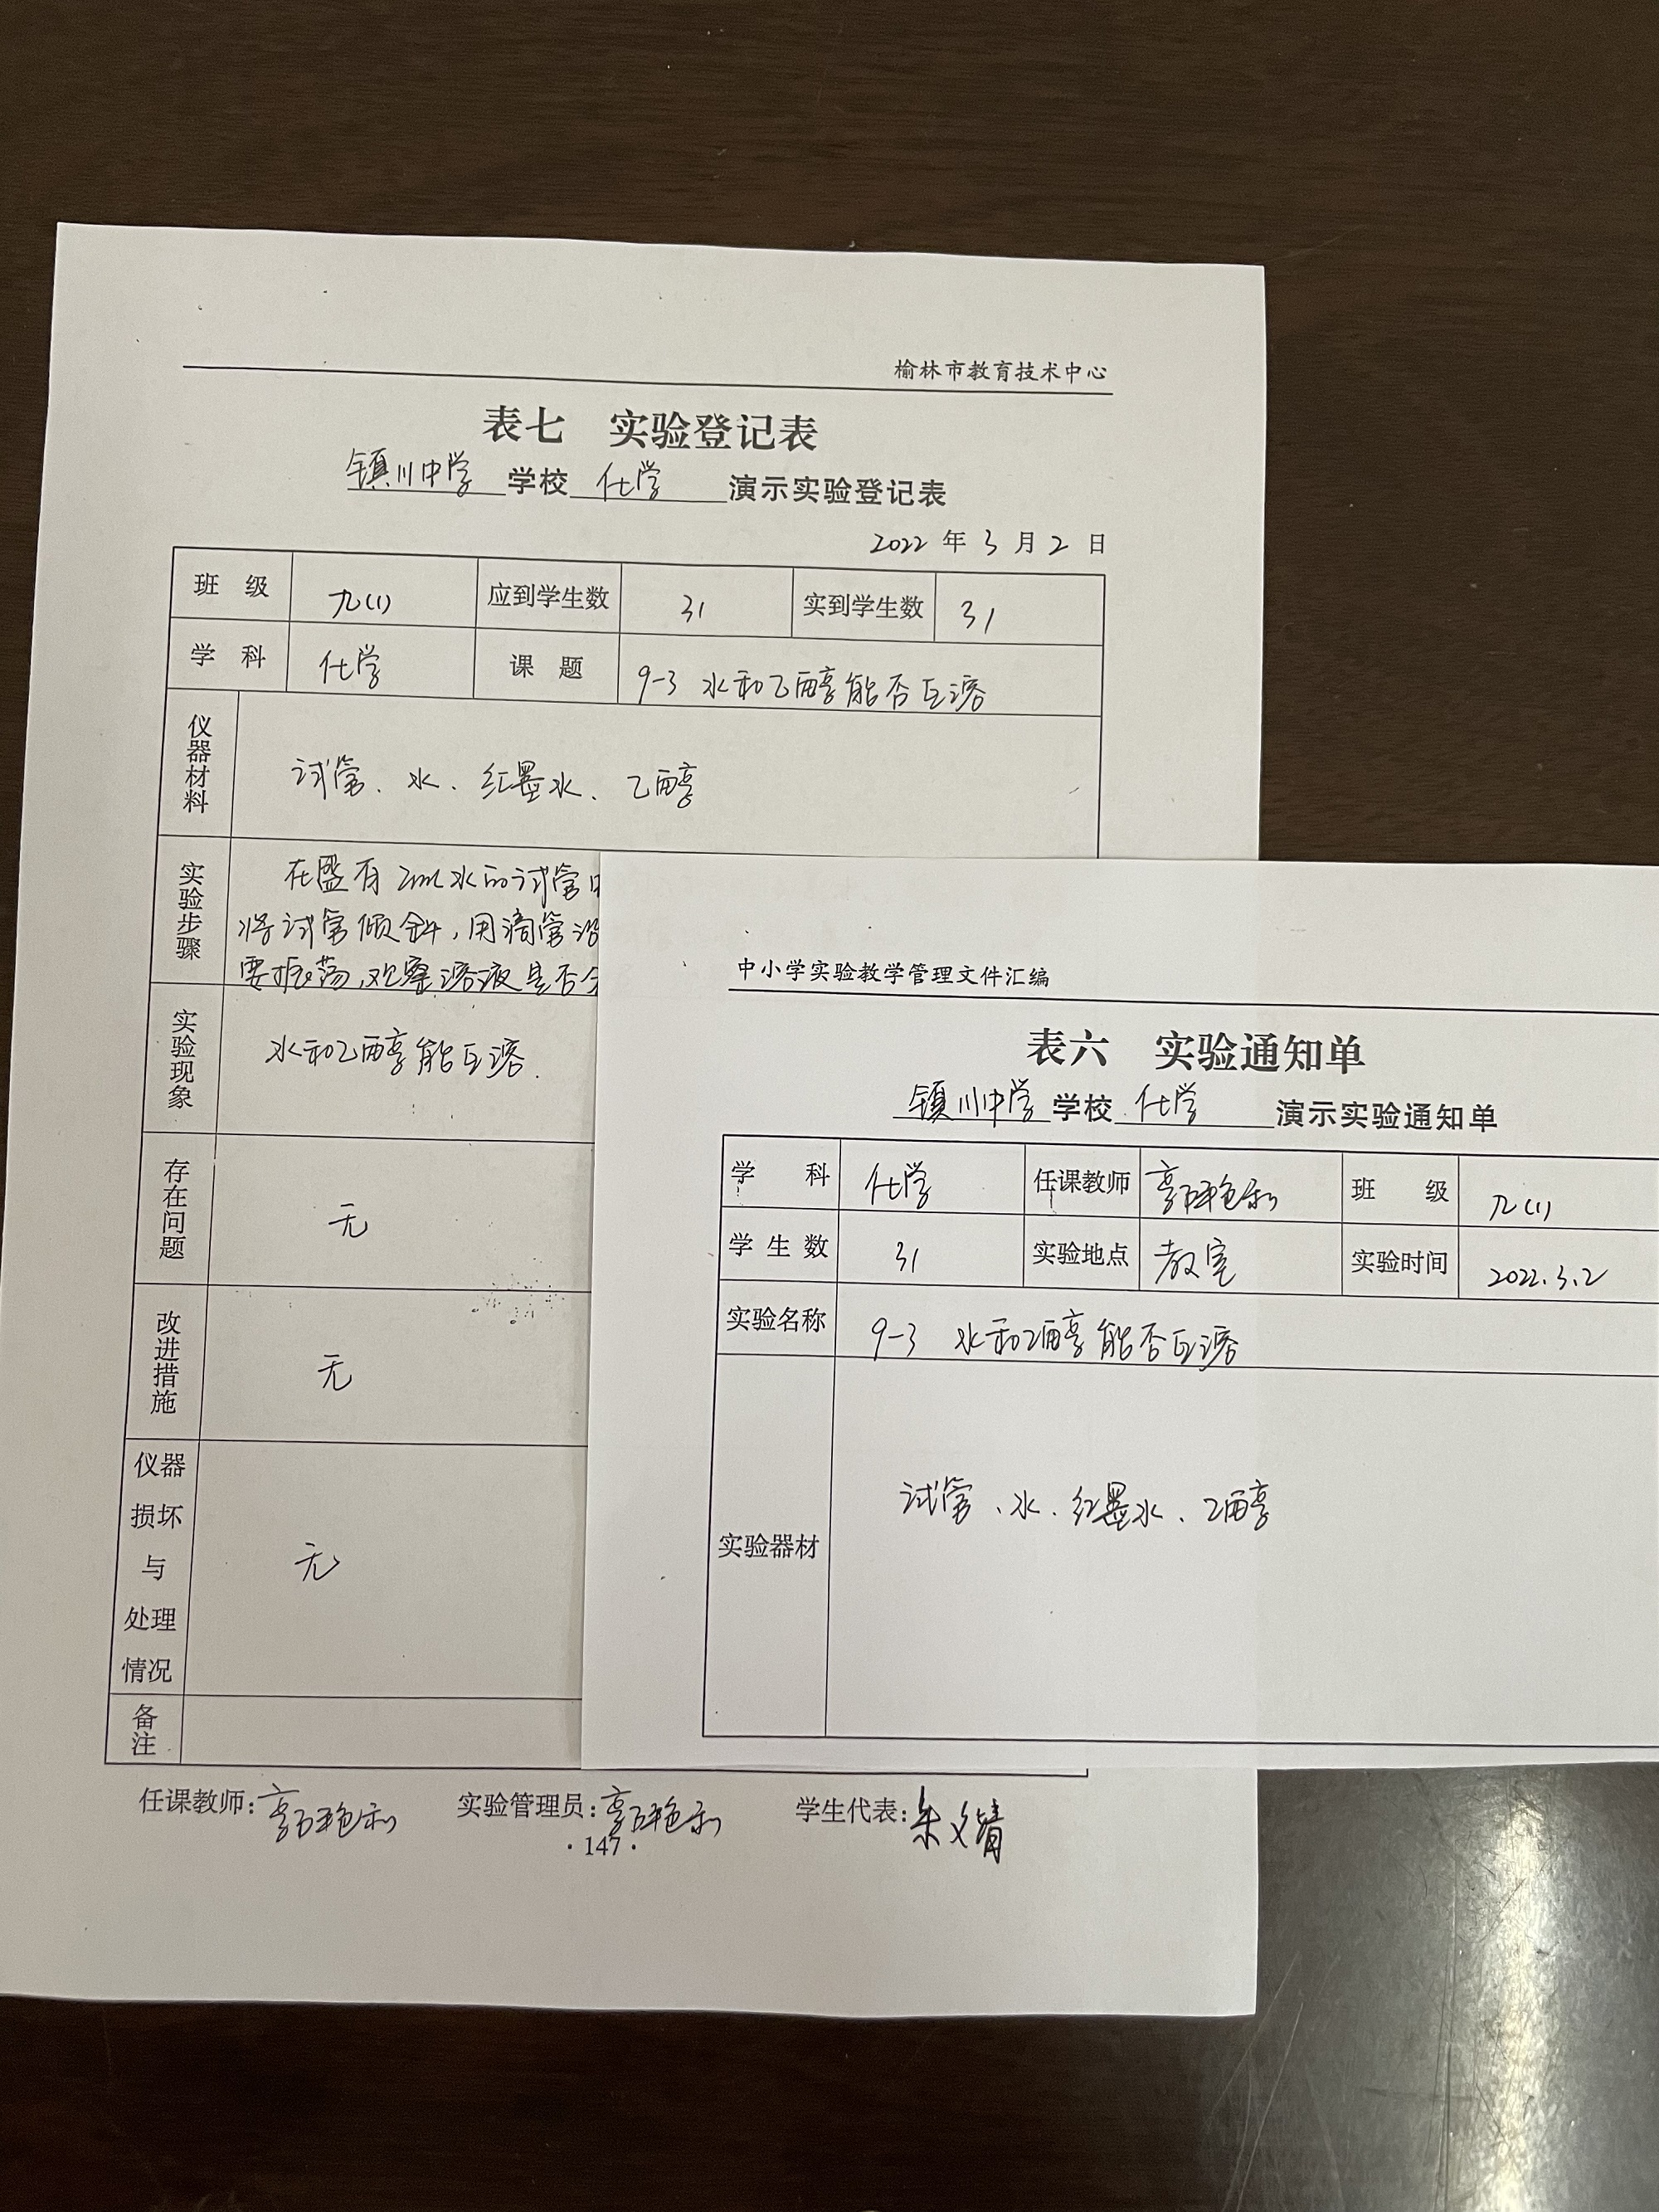 榆林市教育技术中心
表七 实验登记表
镇川中学 学校 化学 演示实验登记表
2022 年 3 月 2 日
班 级 九(1) 应到学生数 31 实到学生数 31
学 科 化学 课 题 9-3 水和乙醇能否互溶
仪器材料 试管、水、红墨水、乙醇
实验步骤 在盛有2ml水的试管中
将试管倾斜,用滴管沿
要振荡,观察溶液是否分
实验现象 水和乙醇能互溶.
存在问题 无
改进措施 无
仪器损坏与处理情况 无
备注
任课教师: 实验管理员: 学生代表:朱文婧
· 147 ·
中小学实验教学管理文件汇编
表六 实验通知单
镇川中学 学校 化学 演示实验通知单
学 科 化学 任课教师 班 级 九(1)
学 生 数 31 实验地点 教室 实验时间 2022.3.2
实验名称 9-3 水和乙醇能否互溶
实验器材 试管、水、红墨水、乙醇